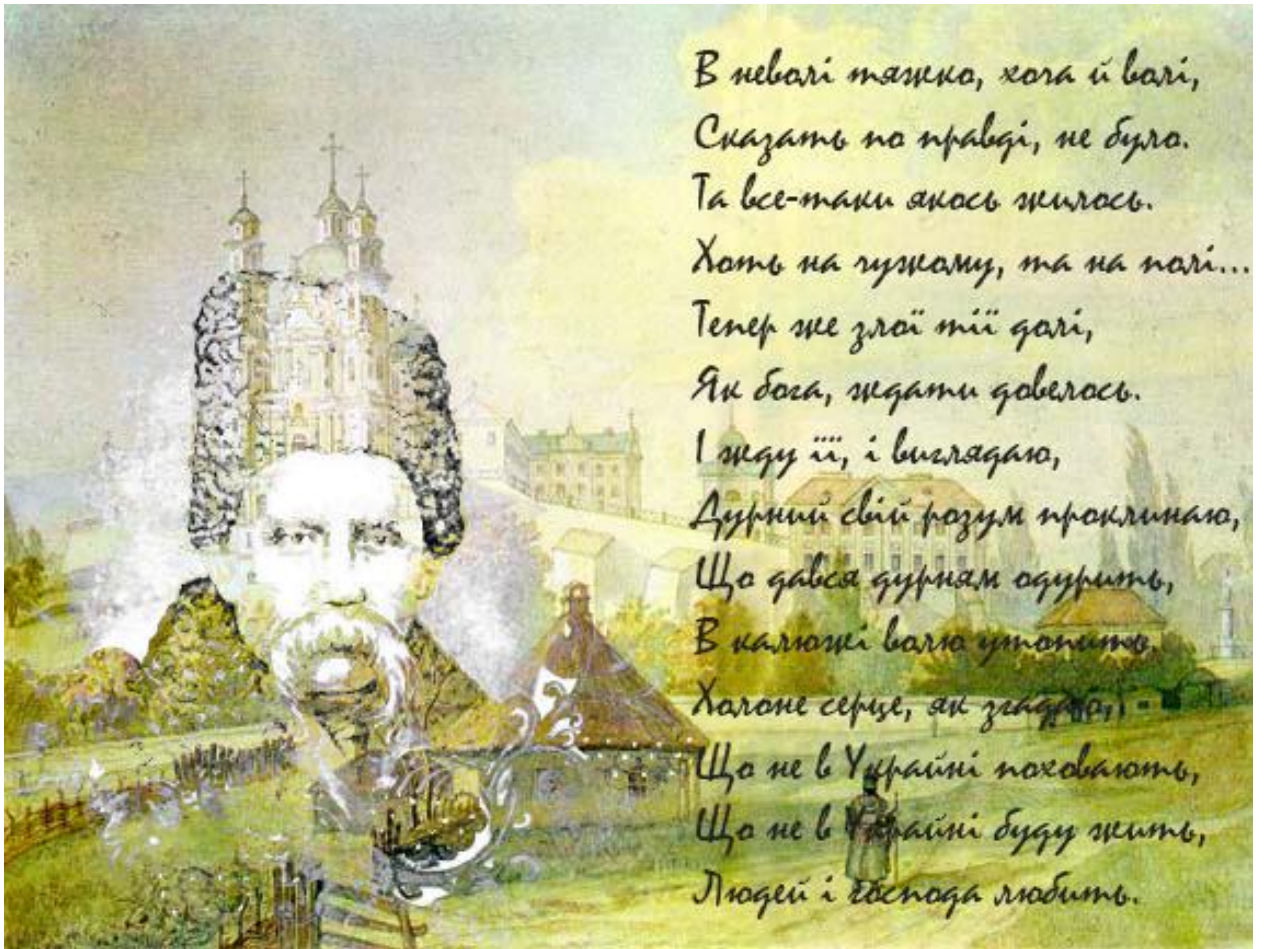 В неволі тяжко, хоча й волі,
Сказать по правді, не було.
Та все-таки якось жилось.
Хоть на чужому, та на полі...
Тепер же злої тії долі,
Як бога, ждати довелось.
І жду її, і виглядаю,
Дурний свій розум проклинаю,
Що дався дурням одурить,
В калюжі волю утопить.
Холоне серце, як згадаю,
Що не в Україні поховають,
Що не в Україні буду жить,
Людей і господа любить.